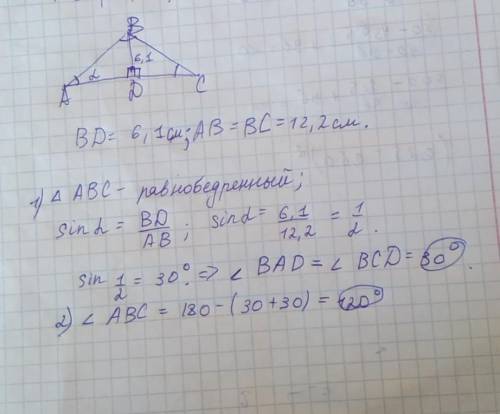 B
α 6,1
A D C
BD = 6,1 см; AB = BC = 12,2 см.
1) Δ ABC - равнобедренный;
sin α = BD/AB; sin α = 6,1/12,2 = 1/2.
sin 1/2 = 30°. => ∠ BAD = ∠ BCD = 30°.
2) ∠ ABC = 180 - (30 + 30) = 120°